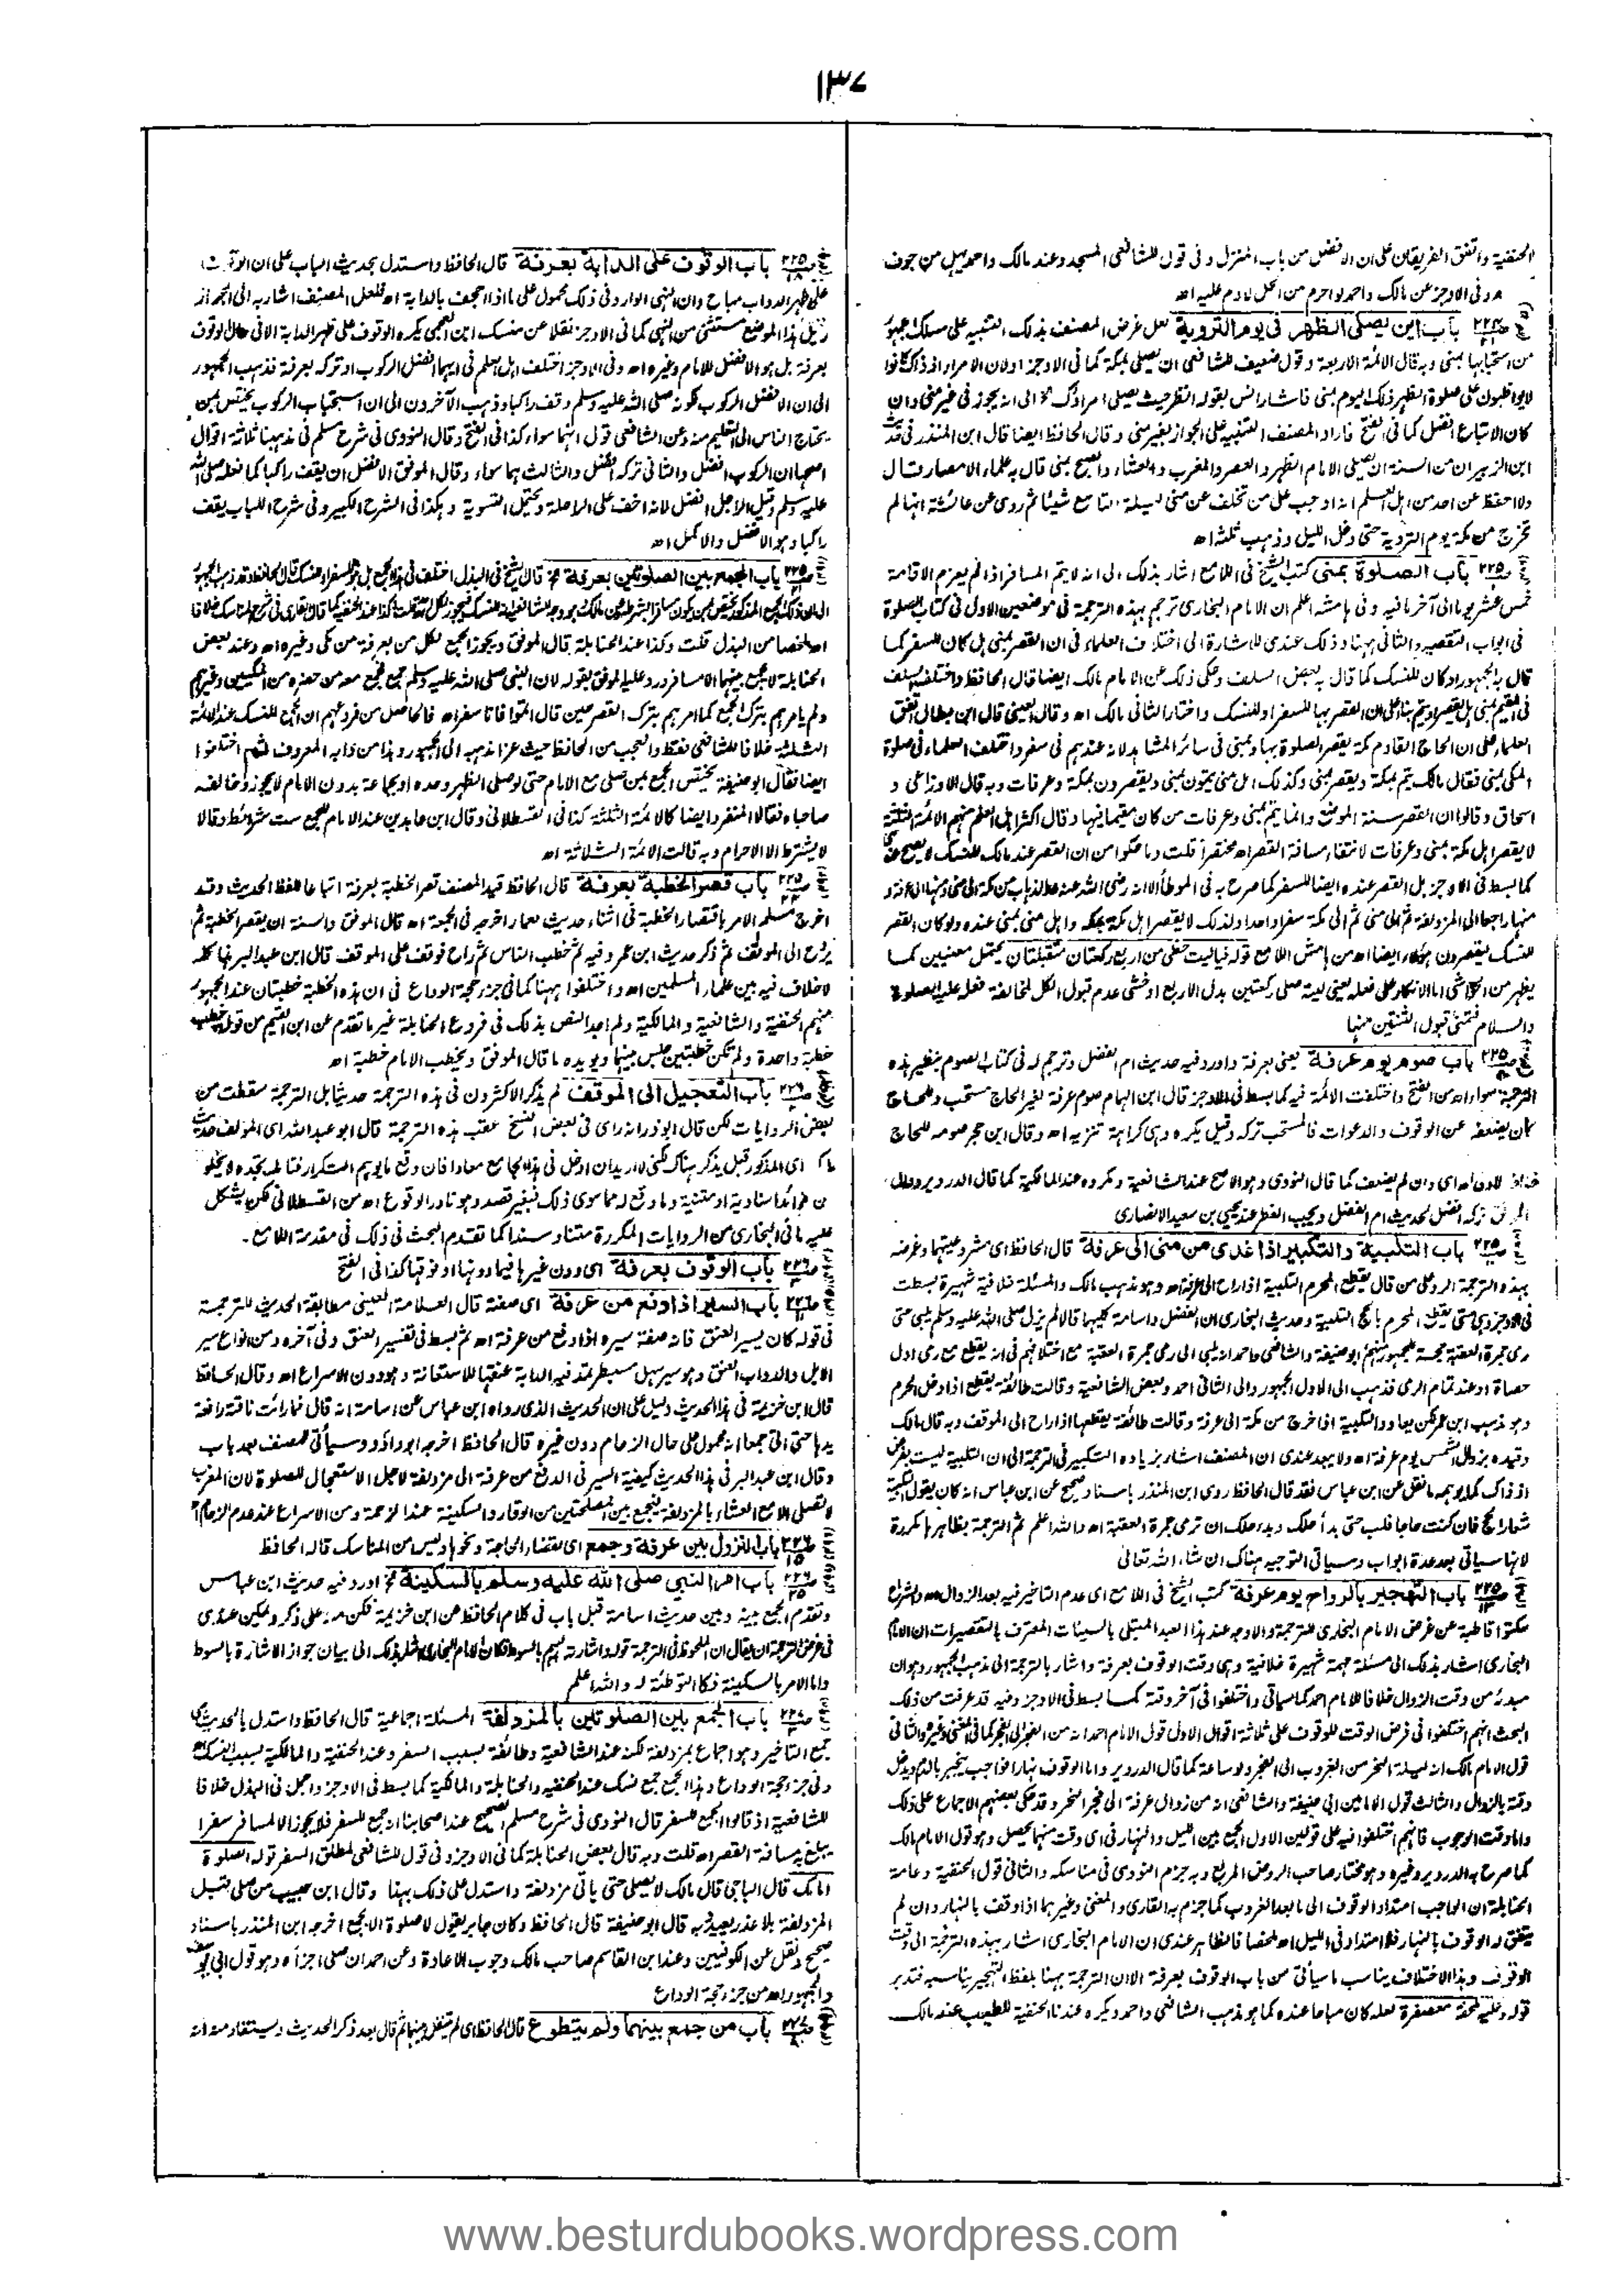 ١٣٧
الحنفية واتفق الفريقان على ان الافضل من باب المنزل وفى قول للشافعى المسجد وعند مالك واحمد يهل من جوف
وفى الاوجز عن مالك واحمد لو احرم من الحل لا دم عليه اه
باب اين يصلى الظهر فى يوم التروية لعل غرض المصنف بذلك التنبيه على مسلك الجمهور
من استحبابها بمنى وبه قال الائمة الاربعة وقول ضعيف للشافعى ان يصلى بمكة كما فى الاوجز اولان الامراء اذ ذاك كانوا
لا يواظبون على صلوة الظهر ذلك اليوم بمنى فاشار انس بقوله انظر حيث يصلى امراؤك الخ الى انه يجوز فى غير منى وان
كان الاتباع افضل كما فى الفتح فاراد المصنف التنبيه على الجواز بغير منى وقال الحافظ ايضا قال ابن المنذر فى حديث
ابن الزبير ان من السنة ان يصلى الامام الظهر والعصر والمغرب والعشاء والصبح بمنى قال به علماء الامصار قال
ولا احفظ عن احد من اهل العلم انه اوجب على من تخلف عن منى ليلة التاسع شيئا ثم روى عن عائشة انها لم
تخرج من مكة يوم التروية حتى دخل الليل وذهب ثلثه اه
باب الصلوة بمنى كتب الشيخ فى اللامع اشار بذلك الى انه لا يتم المسافر اذا لم يعزم الاقامة
خمس عشر يوما الى آخر ما فيه وفى هامشه اعلم ان الامام البخارى ترجم بهذه الترجمة فى موضعين الاول فى كتاب الصلوة
فى ابواب التقصير والثانى ههنا وذلك عندى للاشارة الى اختلاف العلماء فى ان القصر بمنى هل كان للسفر كما
قال به الجمهور او كان للنسك كما قال به بعض السلف وحكى ذلك عن الامام مالك ايضا قال الحافظ واختلف السلف
فى المقيم بمنى هل يقصر او يتم بناء على ان القصر بها للسفر او للنسك واختار الثانى مالك اه وقال العينى قال ابن بطال اتفق
العلماء على ان الحاج القادم مكة يقصر الصلوة بها وبمنى وفى سائر المشاهد لانه عندهم فى سفر واختلف العلماء فى صلوة
المكى بمنى فقال مالك يتم بمكة ويقصر بمنى وكذلك اهل منى يتمون بمنى ويقصرون بمكة وعرفات وبه قال الاوزاعى و
اسحاق وقالوا ان القصر سنة الموضع وانما يتم بمنى وعرفات من كان مقيما فيها وقال اكثر اهل العلم منهم الائمة الثلثة
لا يقصر اهل مكة بمنى وعرفات لانتفاء مسافة القصر اه مختصرا قلت وما حكوا من ان القصر عند مالك للنسك لا يصح عنه
كما بسط فى الاوجز بل القصر عنده ايضا للسفر كما صرح به فى الموطأ الا انه رضى الله عنه عد الذهاب من مكة الى منى ومنها الى عرفة و
منها راجعا الى المزدلفة ثم الى منى ثم الى مكة سفرا واحدا ولذلك لا يقصر اهل مكة بمكة واهل منى بمنى عنده ولو كان القصر
للنسك يقصرون هؤلاء ايضا اه من هامش اللامع قوله فياليت حظى من اربع ركعتان متقبلتان يحتمل معنيين كما
يظهر من الحواشى اما الانكار على فعله يعنى ليته صلى ركعتين بدل الاربع او خشى عدم قبول الكل لمخالفة فعله عليه الصلوة
والسلام فتمنى قبول الثنتين منها
باب صوم يوم عرفة يعنى بعرفة واورد فيه حديث ام الفضل وترجم له فى كتاب الصوم بنظير هذه
الترجمة سواء اه من الفتح واختلفت الائمة فيه كما بسط فى الاوجز قال ابن الهمام صوم عرفة لغير الحاج مستحب وللحاج
ان كان يضعفه عن الوقوف والدعوات فالمستحب تركه وقيل يكره وهى كراهة تنزيه اه وقال ابن حجر صومه للحاج
خلاف الاولى اه اى وان لم يضعف كما قال النووى وهو الاصح عند الشافعية ومكروه عند المالكية كما قال الدردير وقال
الموفق تركه افضل لحديث ام الفضل ويجب الفطر عند يحيى بن سعيد الانصارى
باب التلبية والتكبير اذا غدى من منى الى عرفة قال الحافظ اى مشروعيتها وغرضه
بهذه الترجمة الرد على من قال يقطع المحرم التلبية اذا راح الى عرفة اه وهو مذهب مالك والمسئلة خلافية شهيرة بسطت
فى الاوجز وهى متى يقطع المحرم بالحج التلبية وحديث البخارى ان الفضل واسامة كليهما قالا لم يزل صلى الله عليه وسلم يلبى حتى
رمى جمرة العقبة حجة للجمهور منهم ابو حنيفة والشافعى واحمد انه يلبى الى رمى جمرة العقبة مع اختلافهم فى انه يقطع مع رمى اول
حصاة او عند تمام الرمى فذهب الى الاول الجمهور والى الثانى احمد وبعض الشافعية وقالت طائفة يقطع اذا دخل الحرم
وهو مذهب ابن عمر لكن يعاود التلبية اذا خرج من مكة الى عرفة وقالت طائفة يقطعها اذا راح الى الموقف وبه قال مالك
وقيده بزوال الشمس يوم عرفة اه ولا يبعد عندى ان المصنف اشار بزيادة التكبير فى الترجمة الى ان التلبية ليست بفرض
اذ ذاك كما يوهمه ما نقل عن ابن عباس فقد قال الحافظ روى ابن المنذر باسناد صحيح عن ابن عباس انه كان يقول التلبية
شعار الحج فان كنت حاجا فلب حتى بدأ حلك وبدء حلك ان ترمى جمرة العقبة اه والله اعلم ثم الترجمة بظاهرها مكررة
لانها سيأتى بعد عدة ابواب وسيأتى التوجيه هناك ان شاء الله تعالى
باب التهجير بالرواح يوم عرفة كتب الشيخ فى اللامع اى عدم التاخير فيه بعد الزوال اه والشراح
سكتوا قاطبة عن غرض الامام البخارى للترجمة والاوجه عند هذا العبد المبتلى بالسيئات المعترف بالتقصيرات ان الامام
البخارى اشار بذلك الى مسئلة مهمة شهيرة خلافية وهى وقت الوقوف بعرفة واشار بالترجمة الى مذهب الجمهور وهو ان
مبدئه من وقت الزوال خلافا للامام احمد كما سيأتى واختلفوا فى آخر وقته كما بسط فى الاوجز وفيه قد عرفت من ذلك
البحث انهم اختلفوا فى فرض الوقت للوقوف على ثلاثة اقوال الاول قول الامام احمد انه من الفجر الى الفجر كما فى المغنى وغيره والثانى
قول الامام مالك انه ليلة النحر من الغروب الى الفجر ولو ساعة كما قال الدردير واما الوقوف نهارا فواجب ينجبر بالدم ويدخل
وقته بالزوال والثالث قول الامامين ابى حنيفة والشافعى انه من زوال عرفة الى فجر النحر وقد حكى بعضهم الاجماع على ذلك
واما وقت الوجوب فانهم اختلفوا فيه على قولين الاول الجمع بين الليل والنهار فى اى وقت منهما يحصل وهو قول الامام مالك
كما صرح به الدردير وغيره وهو مختار صاحب الروض المربع وبه جزم النووى فى مناسكه والثانى قول الحنفية وعامة
الحنابلة ان الواجب امتداد الوقوف الى ما بعد الغروب كما جزم به القارى والمغنى وغيرهما اذا وقف بالنهار وان لم
يتفق له الوقوف بالنهار فلا امتداد فى الليل اه ملخصا فالظاهر عندى ان الامام البخارى اشار بهذه الترجمة الى وقت
الوقوف وبذا الاختلاف يناسب ما سيأتى من باب الوقوف بعرفة الا ان الترجمة ههنا بلفظ التهجير يناسبه فتدبر
قوله وعليه ملحفة معصفرة لعله كان مباحا عنده كما هو مذهب الشافعى واحمد ويكره عندنا الحنفية للطيب عند مالك
باب الوقوف على الدابة بعرفة قال الحافظ واستدل بحديث الباب على ان الوقوف
على ظهر الدواب مباح وان النهى الوارد فى ذلك محمول على ما اذا اجحف بالدابة اه فلعل المصنف اشار به الى الجواز
وقيل هذا الموضع مستثنى من النهى كما فى الاوجز نقلا عن منسك ابن العجمى يكره الوقوف على ظهر الدابة الا فى حال الوقوف
بعرفة بل هو الافضل للامام وغيره اه وفى الاوجز اختلف اهل العلم فى ايهما افضل الركوب او تركه بعرفة فذهب الجمهور
الى ان الافضل الركوب لكونه صلى الله عليه وسلم وقف راكبا وذهب الآخرون الى ان استحباب الركوب يختص بمن
يحتاج الناس الى التعليم منه وعن الشافعى قول انهما سواء كذا فى الفتح وقال النووى فى شرح مسلم فى مذهبنا ثلاثة اقوال
اصحها ان الركوب افضل والثانى تركه افضل والثالث هما سواء وقال الموفق الافضل ان يقف راكبا كما فعله صلى الله
عليه وسلم وقيل الراجل افضل لانه اخف على الراحلة ويحتمل التسوية وهكذا فى الشرح الكبير وفى شرح اللباب يقف
راكبا وهو الافضل والاكمل اه
باب الجمع بين الصلوتين بعرفة الخ قال الشيخ فى البذل اختلف فى هذا الجمع هل هو للسفر او للنسك قال الحافظ وقد ذهب الجمهور
اه ملخصا من البذل قلت وكذا عند الحنابلة قال الموفق ويجوز الجمع لكل من بعرفة من مكى وغيره اه وعند بعض
الحنابلة لا يجمع بينهما الا مسافر ورد عليه الموفق بقوله لان النبى صلى الله عليه وسلم جمع فجمع معه من حضره من المكيين وغيرهم
ولم يامرهم بترك الجمع كما امرهم بترك القصر حين قال اتموا فانا سفر اه فالحاصل من فروعهم ان الجمع للنسك عند الائمة
الثلثة خلافا للشافعى فقط والعجب من الحافظ حيث عزا مذهبه الى الجمهور وهذا من دابه المعروف ثم اختلفوا
ايضا فقال ابو حنيفة يختص الجمع بمن صلى مع الامام حتى لو صلى الظهر وحده او بجماعة بدون الامام لا يجوز وخالفه
صاحباه فقالا المنفرد ايضا كالائمة الثلثة كذا فى القسطلانى وقال ابن عابدين عند الامام للجمع ست شرائط وقالا
لا يشترط الا الاحرام وبه قالت الائمة الثلاثة اه
باب قصر الخطبة بعرفة قال الحافظ قيد المصنف قصر الخطبة بعرفة اتباعا للفظ الحديث وقد
اخرج مسلم الامر باقتصار الخطبة فى اثناء حديث لعمار اخرجه فى الجمعة اه قال الموفق والسنة ان يقصر الخطبة ثم
يروح الى الموقف ثم ذكر حديث ابن عمر وفيه ثم خطب الناس ثم راح فوقف على الموقف قال ابن عبد البر هذا كله
لا خلاف فيه بين علماء المسلمين اه واختلفوا ههنا كما فى جزء حجة الوداع فى ان هذه الخطبة خطبتان عند الجمهور
منهم الحنفية والشافعية والمالكية ولم اجد النص بذلك فى فروع الحنابلة غير ما تقدم عن ابن القيم من قوله خطب
خطبة واحدة ولم تكن خطبتين جلس بينهما ويؤيده ما قال الموفق ويخطب الامام خطبة اه
باب التعجيل الى الموقف لم يذكر الاكثرون فى هذه الترجمة حديثا بل الترجمة سقطت من
بعض الروايات لكن قال ابو ذر انه رأى فى بعض النسخ عقب هذه الترجمة قال ابو عبد الله اى المؤلف حديث
مالك اى المذكور قبل يذكر هناك لكنى لا اريد ان ادخل فى هذا الجامع معادا فان وقع ما يوهم التكرار فتامله تجده لا يخلو
من فوائد اسنادية او متنية وما وقع له مما سوى ذلك فبغير قصد وهو نادر الوقوع اه من القسطلانى لكن يشكل
عليه ما فى البخارى من الروايات المكررة متنا وسندا كما تقدم البحث فى ذلك فى مقدمة اللامع ـ
باب الوقوف بعرفة اى دون غيرها فيما دونها او فوقها كذا فى الفتح
باب السير اذا دفع من عرفة اى صفته قال العلامة العينى مطابقة الحديث للترجمة
فى قوله كان يسير العنق فانه صفة سيره اذا دفع من عرفة اه ثم بسط فى تفسير العنق وفى آخره ومن انواع سير
الابل والدواب العنق وهو سير سهل مسبطر تمد فيه الدابة عنقها للاستعانة وهو دون الاسراع اه وقال الحافظ
قال ابن خزيمة فى هذا الحديث دليل على ان الحديث الذى رواه ابن عباس عن اسامة انه قال فما رأيت ناقته رافعة
يدها حتى اتى جمعا انه محمول على حال الزحام دون غيره قال الحافظ اخرجه ابو داؤد وسيأتى للمصنف بعد باب
وقال ابن عبد البر فى هذا الحديث كيفية السير فى الدفع من عرفة الى مزدلفة لاجل الاستعجال للصلوة لان المغرب
لا تصلى الا مع العشاء بالمزدلفة فيجمع بين المصلحتين من الوقار والسكينة عند الزحمة ومن الاسراع عند عدم الزحام اه
باب النزول بين عرفة وجمع اى لقضاء الحاجة ونحوها وليس من المناسك قاله الحافظ
باب امر النبي صلى الله عليه وسلم بالسكينة الخ اورد فيه حديث ابن عباس
وتقدم الجمع بينه وبين حديث اسامة قبل باب فى كلام الحافظ عن ابن خزيمة فكن منه على ذكر ويمكن عندى
فى غرض الترجمة ان يقال ان الملحوظ فى الترجمة قوله واشارته اليهم بالسوط فكان الامام البخارى اشار بذلك الى بيان جواز الاشارة بالسوط
واما الامر بالسكينة فكالتوطئة له والله اعلم
باب الجمع بين الصلوتين بالمزدلفة المسئلة اجماعية قال الحافظ واستدل بالحديث على
جمع التاخير وهو اجماع بمزدلفة لكنه عند الشافعية وطائفة بسبب السفر وعند الحنفية والمالكية بسبب النسك اه
وفى جزء حجة الوداع وهذا الجمع جمع نسك عند الحنفيه والحنابلة والمالكية كما بسط فى الاوجز واجمل فى البذل خلافا
للشافعية اذ قالوا الجمع للسفر قال النووى فى شرح مسلم الصحيح عند اصحابنا انه جمع للسفر فلا يجوز الا لمسافر سفرا
يبلغ به مسافة القصر اه قلت وبه قال بعض الحنابلة كما فى الاوجز وفى قول للشافعى لمطلق السفر قوله الصلوة
امامك قال الباجى قال مالك لا يصلى حتى ياتى مزدلفة واستدل على ذلك بهذا وقال ابن حبيب من صلى قبيل
المزدلفة بلا عذر يعيد وبه قال ابو حنيفة قال الحافظ وكان جابر يقول لا صلوة الا بجمع اخرجه ابن المنذر باسناد
صحيح ونقل عن الكوفيين وعند ابن القاسم صاحب مالك وجوب الاعادة وعن احمد ان صلى اجزأه وهو قول ابى يوسف
والجمهور اه من جزء حجة الوداع
باب من جمع بينهما ولم يتطوع قال الحافظ اى لم يتنفل بينهما ثم قال بعد ذكر الحديث ويستفاد منه انه
www.besturdubooks.wordpress.com